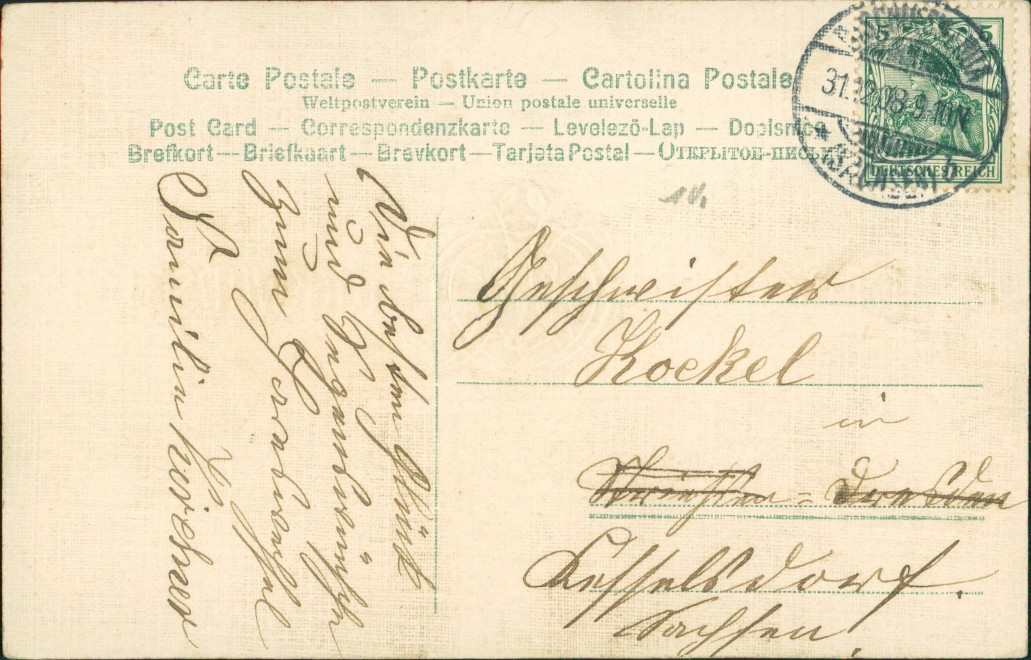 Carte Postale — Postkarte — Cartolina Postale
Weltpostverein — Union postale universelle
Post Card — Correspondenzkarte — Levelező-Lap — Dopisnice
Brefkort — Briefkaart — Brevkort — Tarjeta Postal — Открытое-письмо
5 5
DEUTSCHES REICH
31.12.08.9-10N.
(SACHSEN)
Die besten Glück
und Segenswünsche
zum
Jahreswechsel
Familie Kirchner
Geschwister
Kockel
in
Dresden
Kesselsdorf.
Sachsen